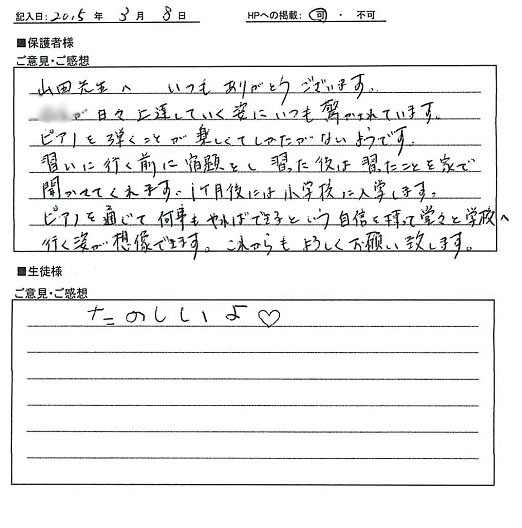 記入日: 2015 年 3 月 8 日 HPへの掲載: 可 ・ 不可
■保護者様
ご意見・ご感想
山田先生へ いつもありがとうございます。
が日々上達していく姿にいつも驚かされています。
ピアノを弾くことが楽しくてしかたがないようです。
習いに行く前に宿題をし 習った後は習ったことを家で
聞かせてくれます。1ヶ月後には小学校に入学します。
ピアノを通じて何事もやればできるという自信を持って堂々と学校へ
行く姿が想像できます。これからもよろしくお願い致します。
■生徒様
ご意見・ご感想
たのしいよ♡